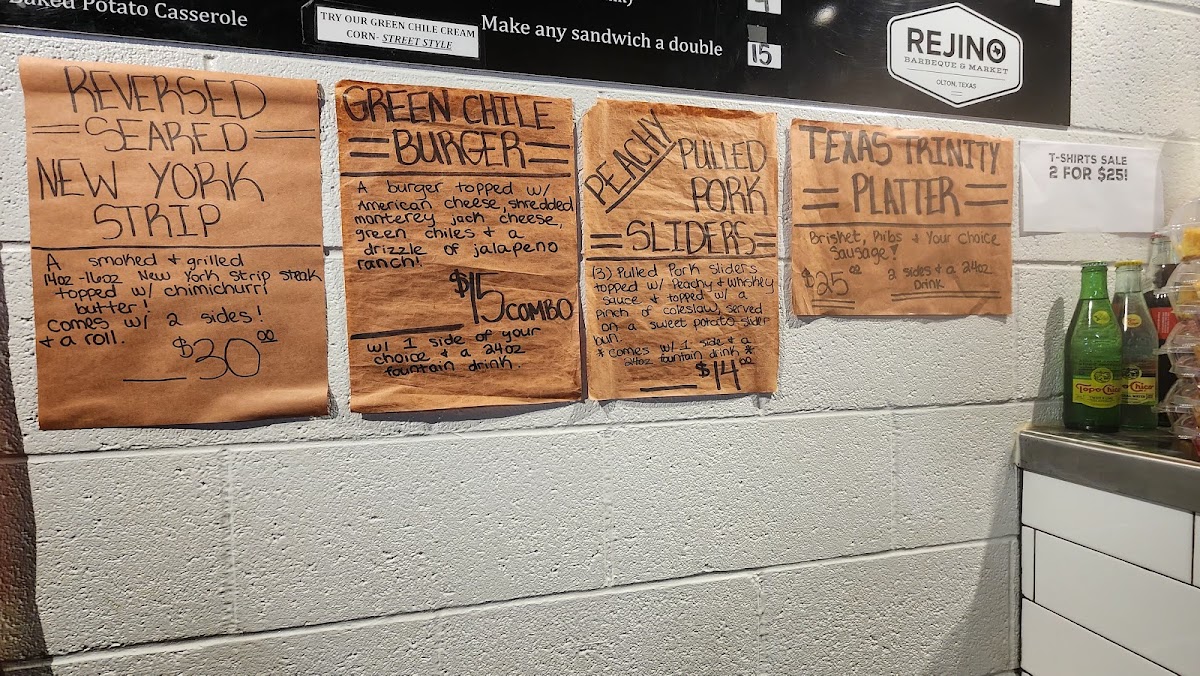 Baked Potato Casserole
TRY OUR GREEN CHILE CREAM
CORN- STREET STYLE
Make any sandwich a double
15
REJINO
BARBEQUE & MARKET
OLTON, TEXAS
REVERSED
SEARED
NEW YORK
STRIP
A smoked & grilled
14oz -16oz New York Strip steak
topped w/ chimichurri
butter!
Comes w/ 2 sides!
& a roll.
$30.00
GREEN CHILE
BURGER
A burger topped w/
American cheese, shredded
monterey jack cheese,
green chiles & a
drizzle of jalapeno
ranch!
$15 COMBO
w/ 1 side of your
choice & a 24oz
fountain drink.
PEACHY PULLED
PORK
SLIDERS
(3) Pulled Pork sliders
topped w/ Peachy & Whiskey
sauce & topped w/ a
pinch of coleslaw, served
on a sweet potato slider
bun.
* comes w/ 1 side & a
24oz fountain drink *
$14.00
TEXAS TRINITY
PLATTER
Brisket, Ribs & Your Choice
Sausage!
$25.00
2 sides & a 24oz
Drink
T-SHIRTS SALE
2 FOR $25!
Topo Chico
Topo Chico